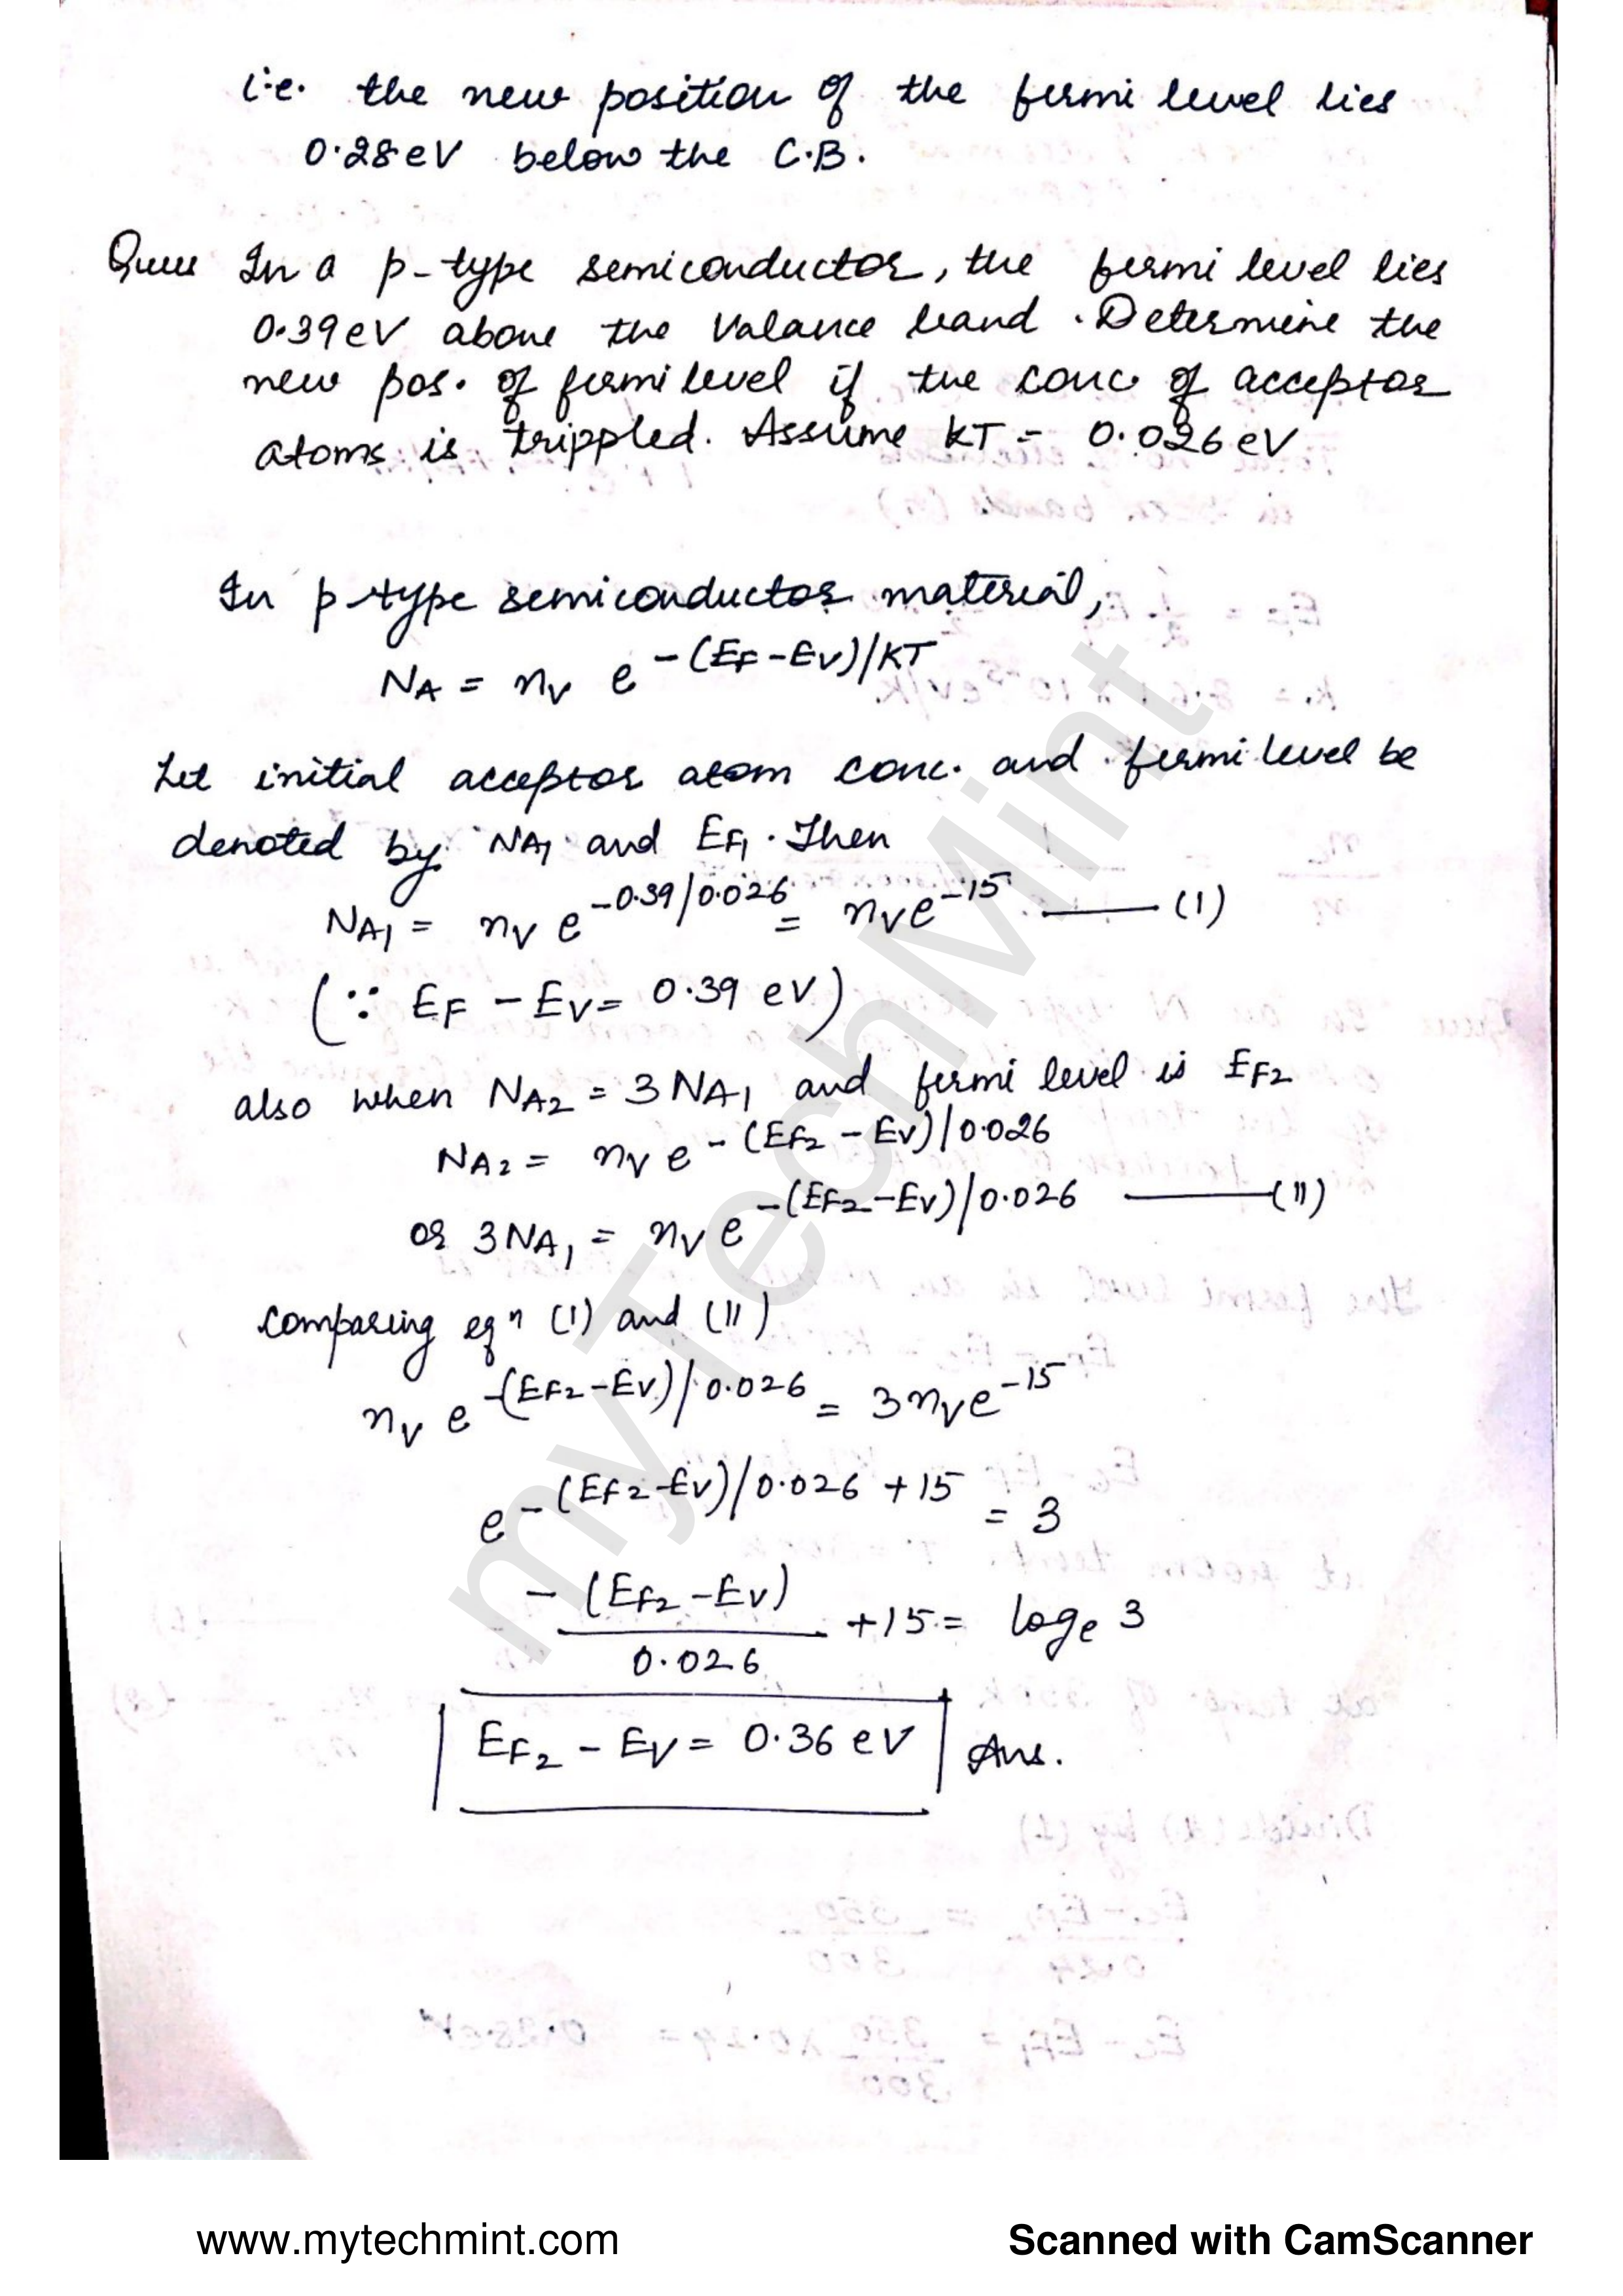 i.e. the new position of the fermi level lies
0.28 eV below the C.B.
Ques In a p-type semiconductor, the fermi level lies
0.39 eV above the Valance band. Determine the
new pos. of fermi level if the conc of acceptor
atoms is trippled. Assume KT = 0.026 eV
In p-type semiconductor material,
NA = nv e -(EF-EV)/KT
Let initial acceptor atom conc. and fermi level be
denoted by NA1 and EF1. Then
NA1 = nv e -0.39/0.026 = nv e -15 —— (1)
(∵ EF - EV = 0.39 eV)
also when NA2 = 3 NA1 and fermi level is EF2
NA2 = nv e -(EF2 - EV)/0.026
or 3NA1 = nv e -(EF2-EV)/0.026 —— (11)
Comparing eqn (1) and (11)
nv e -(EF2-EV)/0.026 = 3nv e -15
e -(EF2-EV)/0.026 + 15 = 3
- (EF2 - EV)
0.026
+15 = loge 3
EF2 - EV = 0.36 eV Ans.
myTechMint
www.mytechmint.com
Scanned with CamScanner